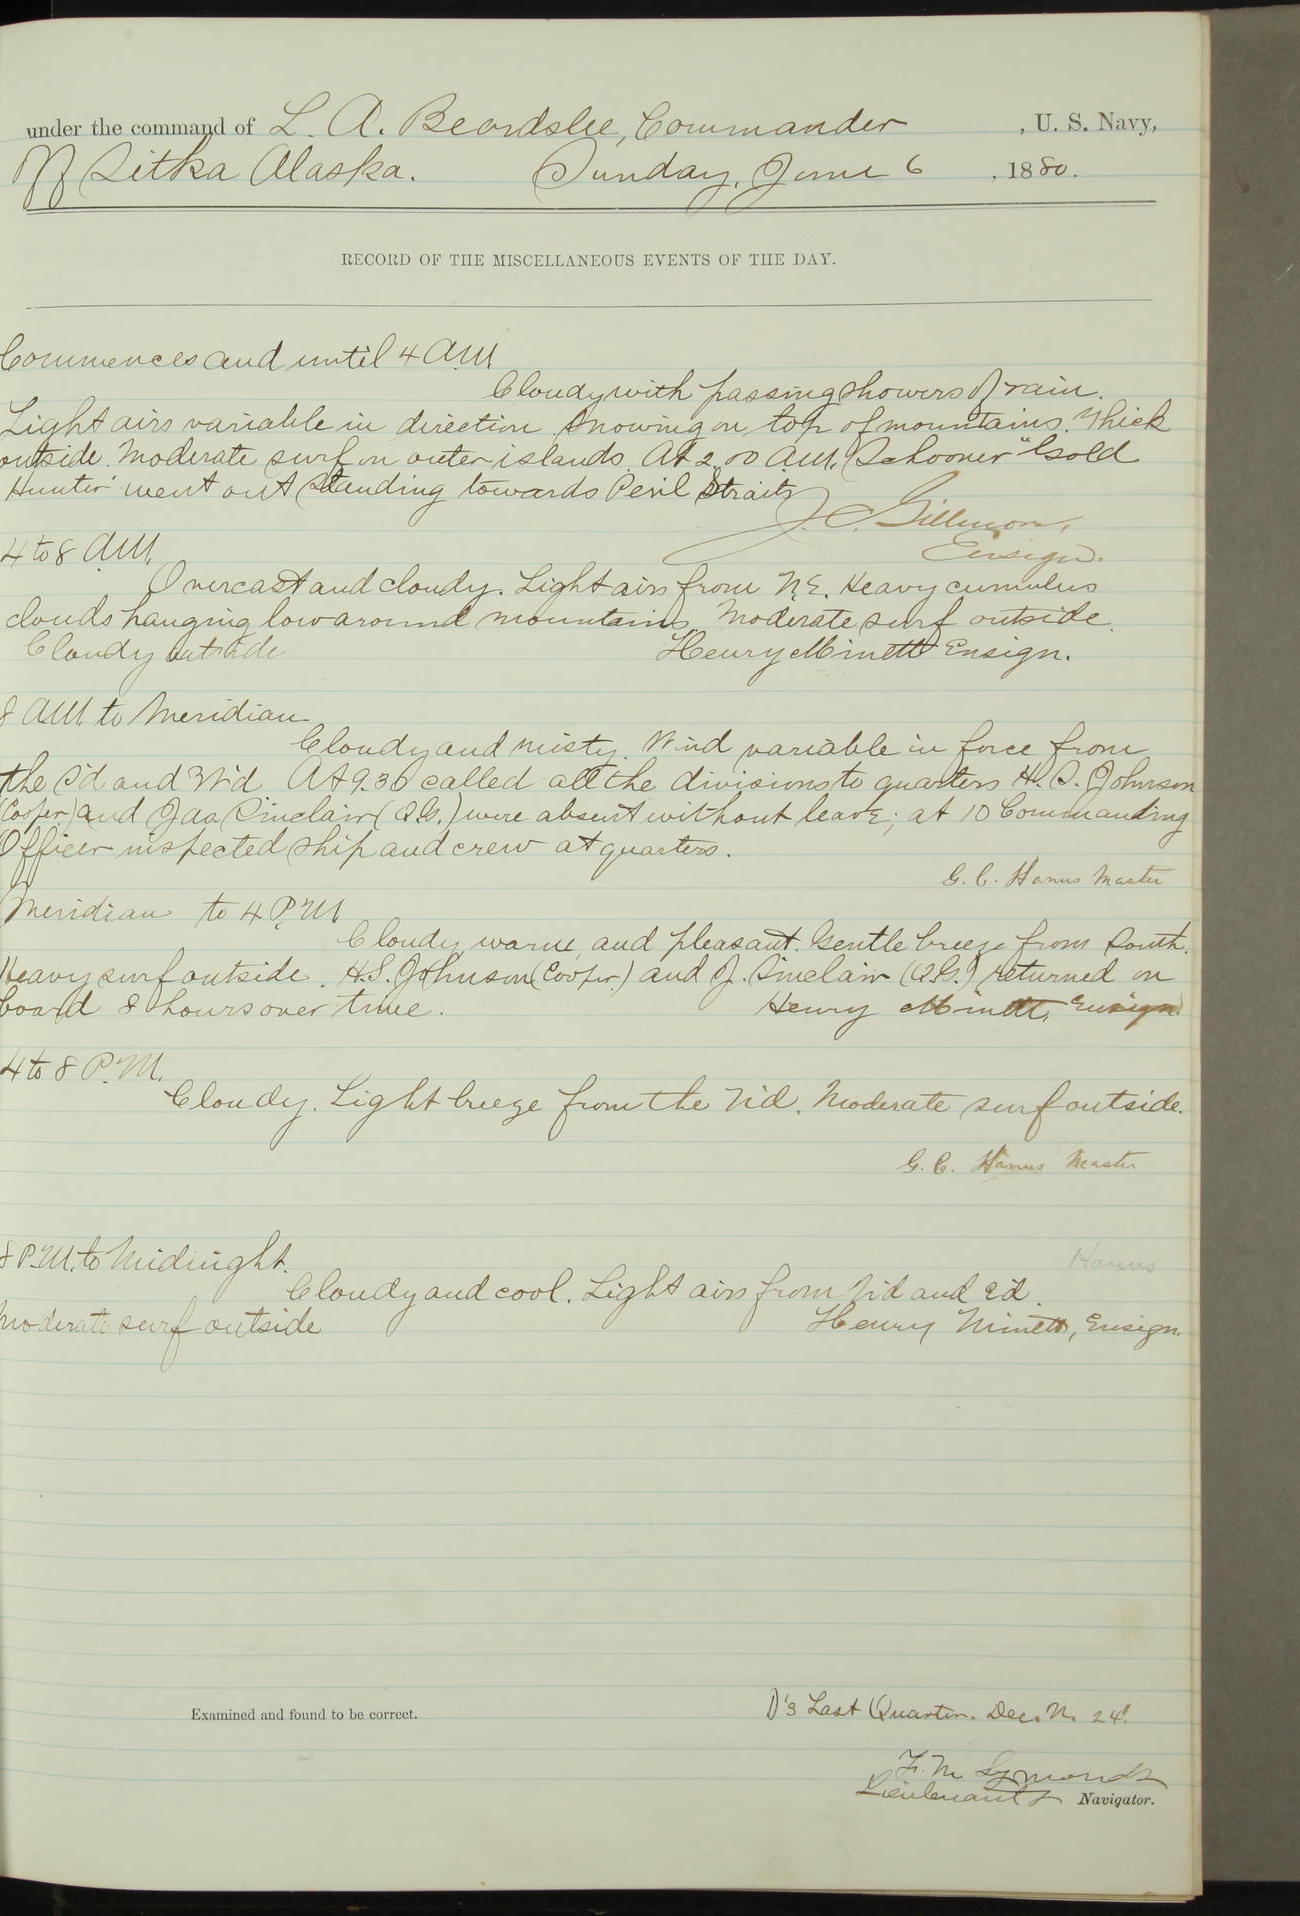 under the command of L. A. Beardslee, Commander , U. S. Navy,
Off Sitka Alaska. Sunday, June 6 , 1880.
RECORD OF THE MISCELLANEOUS EVENTS OF THE DAY.
Commences and until 4 A.M.
Cloudy with passing showers of rain.
Light airs variable in direction. Snowing on top of mountains. Thick
outside. Moderate surf on outer islands. At 2.00 A.M. Schooner "Gold
Hunter" went out standing towards Peril Straits
J. C. Gillmore,
Ensign.
4 to 8 A.M.
Overcast and cloudy. Light airs from N.E. Heavy cumulus
clouds hanging low around mountains. Moderate surf outside.
Cloudy outside
Henry Minett Ensign.
8 A.M. to Meridian
Cloudy and misty. Wind variable in force from
the S'd and W'd At 9.30 called all the divisions to quarters H. S. Johnson
(Cooper) and Jas Sinclair (Q.G.) were absent without leave; at 10 Commanding
Officer inspected ship and crew at quarters.
G. C. Hanus Master
Meridian to 4 P.M
Cloudy, warm, and pleasant. Gentle breeze from South.
Heavy surf outside. H.S. Johnson (Cooper) and J. Sinclair (Q.G.) returned on
board 8 hours over time.
Henry Minett, Ensign
4 to 8 P.M.
Cloudy. Light breeze from the N'd. Moderate surf outside.
G. C. Hanus Master
8 P.M. to Midnight.
Hanus
Cloudy and cool. Light airs from N'd and E'd.
Moderate surf outside
Henry Minett, Ensign.
Examined and found to be correct.
D's Last Quarter. Dec. N. 24°
F. M. Symonds
Lieutenant & Navigator.